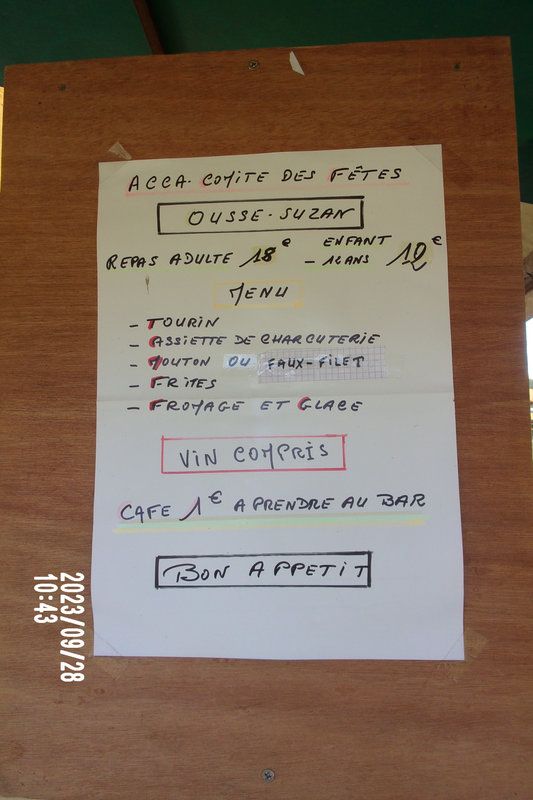 ACCA. COMITE DES FÊTES
OUSSE-SUZAN
REPAS ADULTE 18€ - ENFANT - 12ANS 12€
MENU
- TOURIN
- ASSIETTE DE CHARCUTERIE
- MOUTON OU FAUX-FILET
- FRITES
- FROMAGE ET GLACE
VIN COMPRIS
CAFE 1€ A PRENDRE AU BAR
BON APPETIT
2023/09/28
10:43